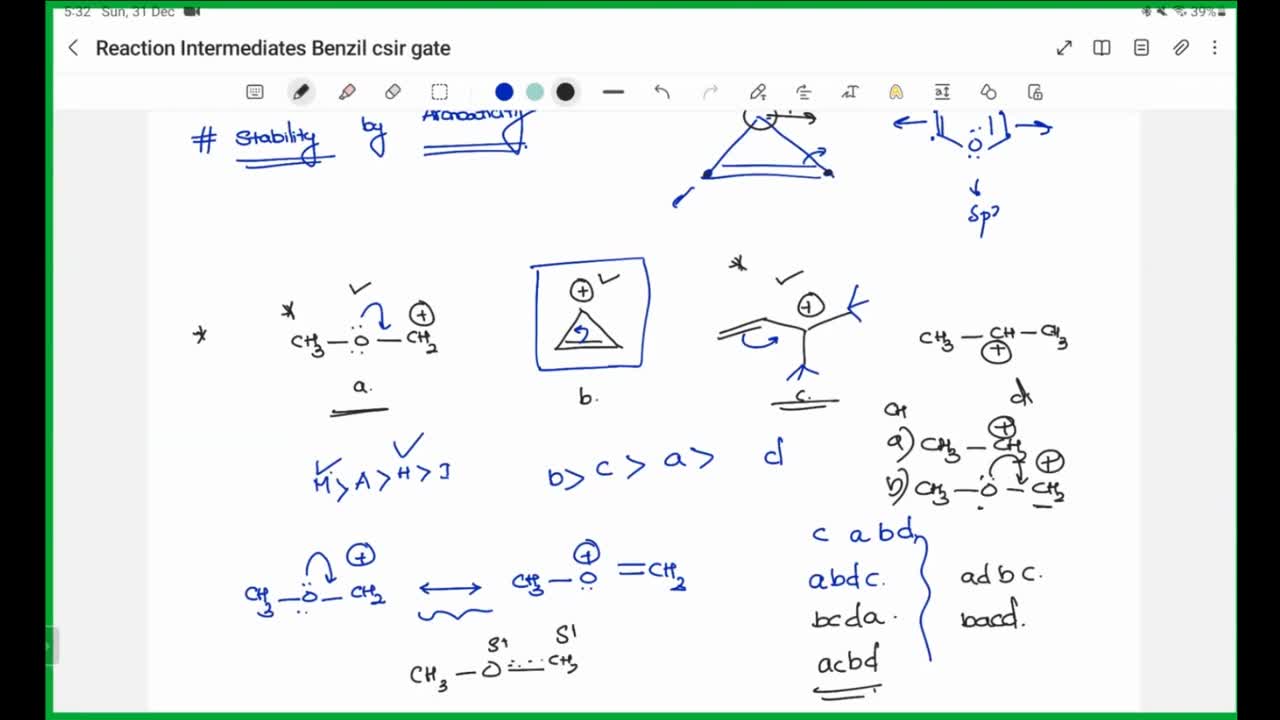 5:32 Sun, 31 Dec
39%
Reaction Intermediates Benzil csir gate
# Stability by Aromaticity
sp²
CH₃ — O — CH₂ ⊕
⊕
⊕
CH₃ — CH — CH₃
⊕
a.
b.
c.
d
a) CH₃ — CH₂ ⊕
b) CH₃ — O — CH₂ ⊕
M > A > H > I
b > c > a > d
CH₃ — O — CH₂ ⊕ ⟷ CH₃ — O = CH₂ ⊕
CH₃ — O CH₃
c a b d
a b d c.
a d b c.
b c d a.
b a c d.
a c b d